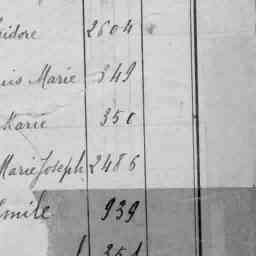 sidore 2604
uis Marie 349
Marie 350
Marie Joseph 2486
Emile 939
351